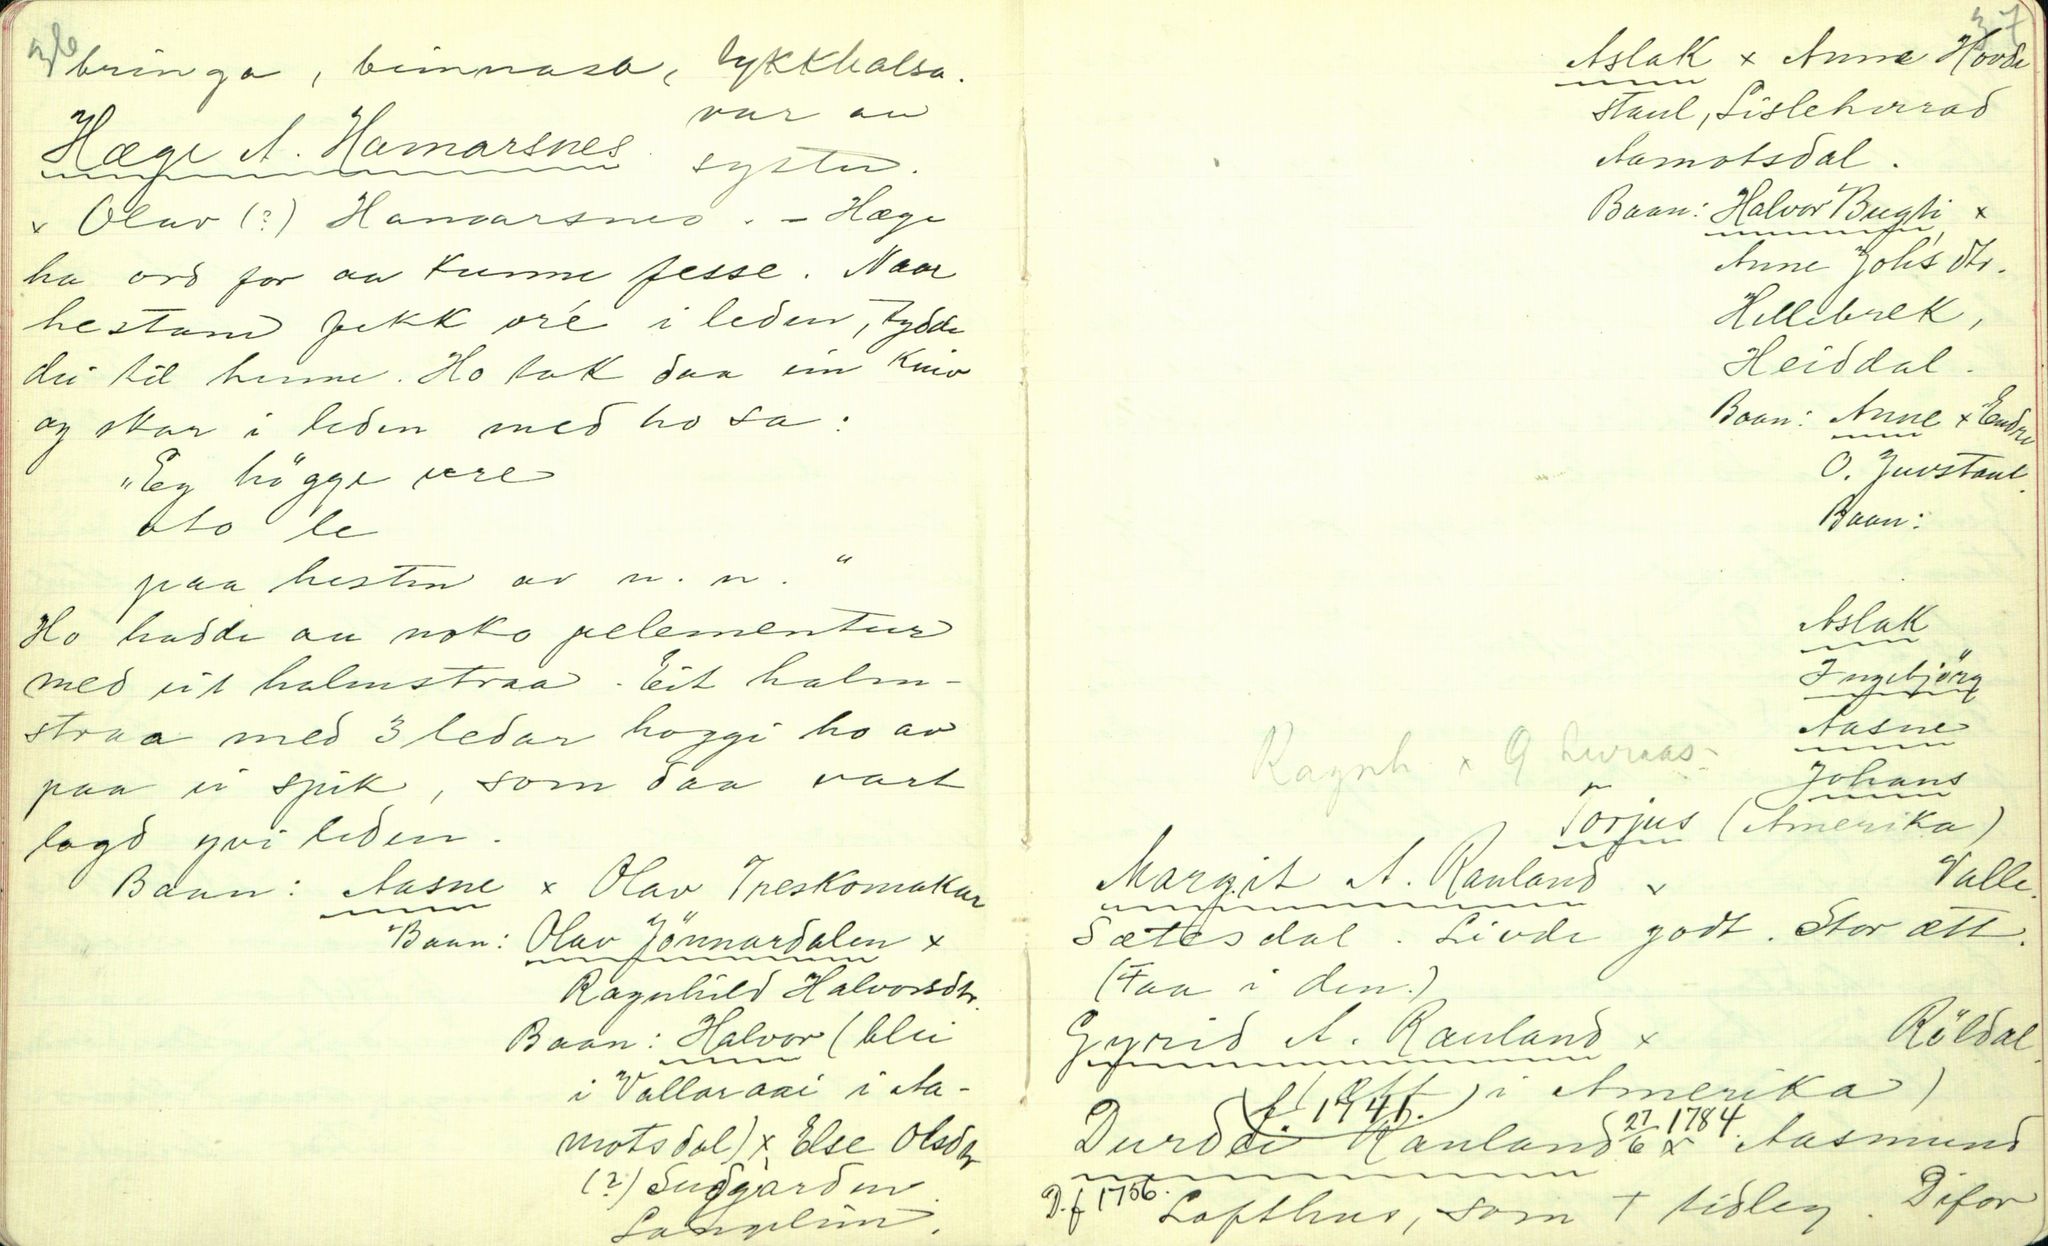 36
bringa, binnasa, lykkhalsa.
Hæge A. Hamarsnes. var au
syster.
x Olav (?) Hamarsnes. – Hæge
ha ord for aa kunne fesse. Naar
hestann fekk vre i leden, tydde
dei til henne. Ho tok daa ein kniv
og skar i leden med ho sa:
"Eg högge vre
oto le
paa hesten av n. n."
Ho hadde au noko pelementur
med eit halmstraa. Eit halm-
straa med 3 ledar hoggi ho av
paa ei spik, som daa vart
lagd yvi leden.
Baan: Aasne x Olav Treskomakar
Baan: Olav Jönnardalen x
Ragnhild Halvorsdtr.
Baan: Halvor (blei
i Vallaraai i Aa-
motsdal) x Else Olsdtr
(?) Sudgarden
Langelim.
37
Aslak x Anne Hovde
staul, Lisleherrad
Aamotsdal.
Baan: Halvor Bugti x
Anne Johs dtr.
Hellebrek,
Heiddal.
Baan: Anne x Endre
O. Juvstaul.
Baan:
Aslak
Ingebjörg
Aasne
Johans
Ragnh. x
Torjus (Amerika)
Margit A. Rauland x Valle.
Sætesdal. Livde godt. Stor ætt.
(Faa i den.)
Gyrid A. Rauland x Röldal.
(ætt i Amerika)
f 1741.
Durdei Rauland 27/6 1784 x Aasmund
D. f 1756.
Lofthus, som + tidleg. Difor